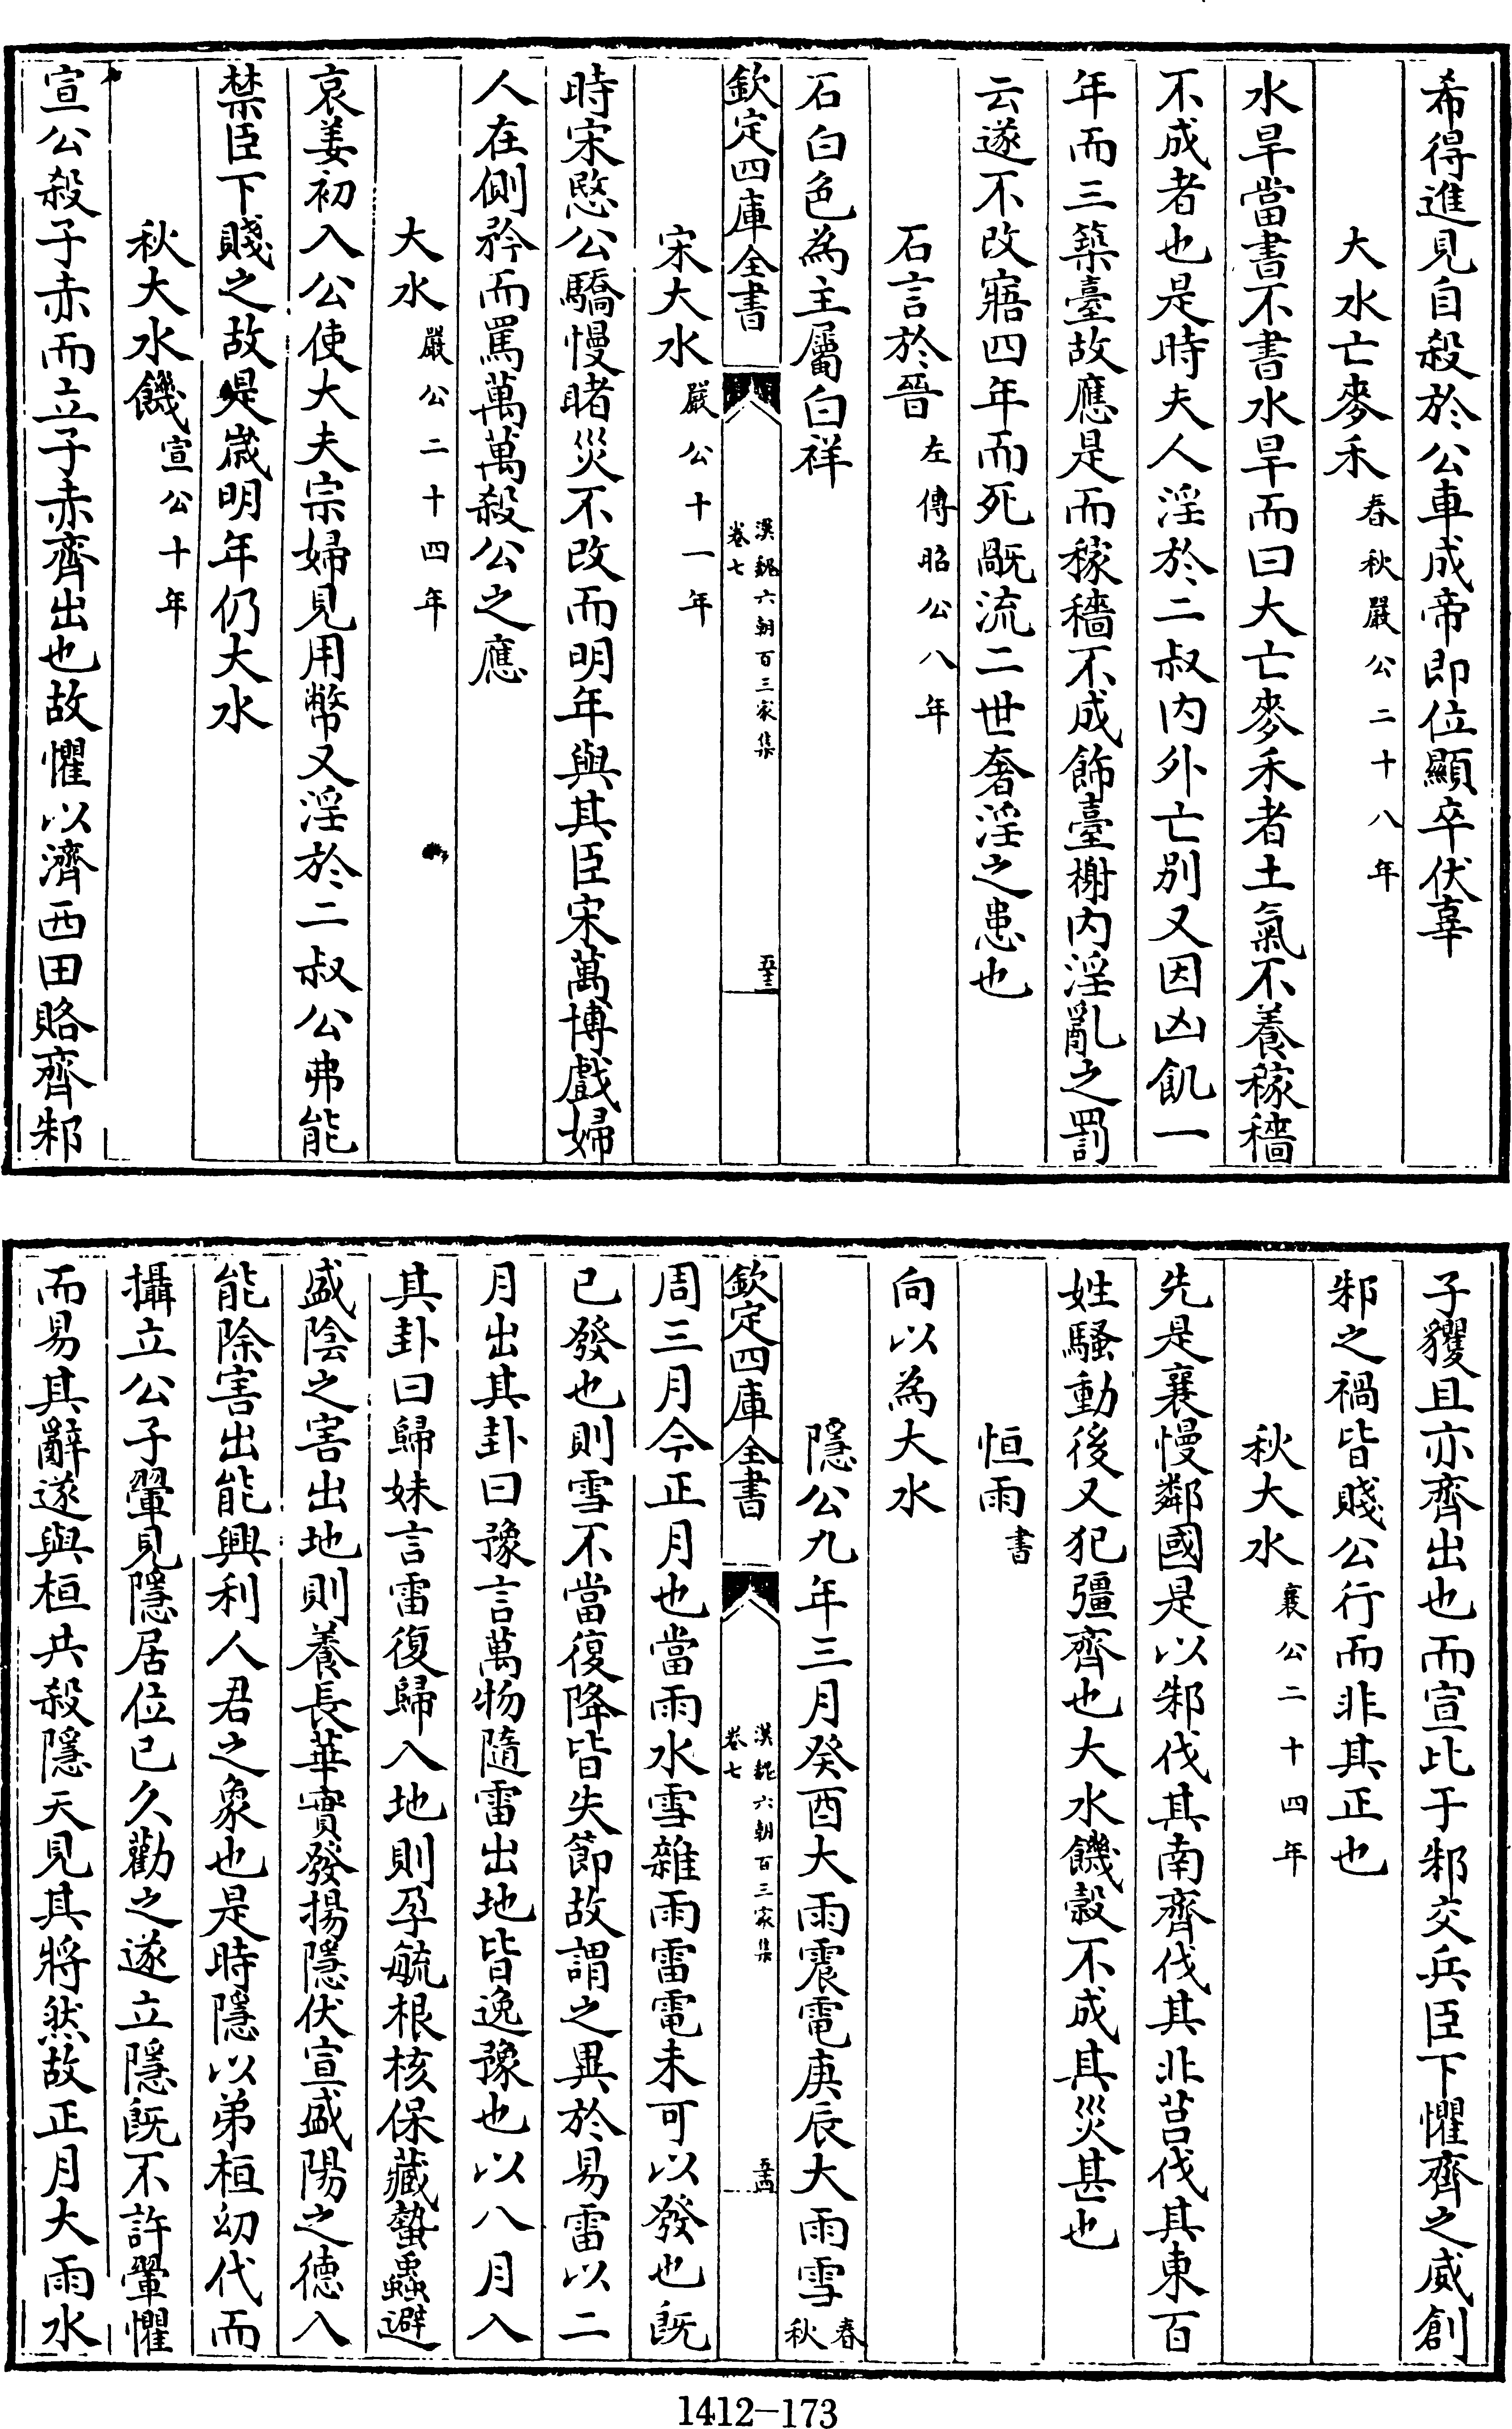 希得進見自殺於公車成帝即位顯卒伏辜
大水亡麥禾春秋嚴公二十八年
水旱當書不書水旱而曰大亡麥禾者土氣不養稼穡
不成者也是時夫人淫於二叔内外亡别又因凶飢一
年而三築臺故應是而稼穡不成飾臺榭内淫亂之罰
云遂不改寤四年而死厩流二世奢淫之患也
石言於晉左傳昭公八年
石白色為主屬白祥
欽定四庫全書
漢魏六朝百三家集
卷七
五十三
宋大水嚴公十一年
時宋愍公驕慢睹災不改而明年與其臣宋萬博戲婦
人在側矜而罵萬萬殺公之應
大水嚴公二十四年
哀姜初入公使大夫宗婦見用幣又淫於二叔公弗能
禁臣下賤之故是歲明年仍大水
秋大水饑宣公十年
宣公殺子赤而立子赤齊出也故懼以濟西田賂齊邾
子貜且亦齊出也而宣比于邾交兵臣下懼齊之威創
邾之禍皆賤公行而非其正也
秋大水襄公二十四年
先是襄慢鄰國是以邾伐其南齊伐其北莒伐其東百
姓騷動後又犯彊齊也大水饑穀不成其災甚也
恒雨書
向以為大水
隱公九年三月癸酉大雨震電庚辰大雨雪春秋
欽定四庫全書
漢魏六朝百三家集
卷七
五十四
周三月今正月也當雨水雪雜雨雷電未可以發也既
已發也則雪不當復降皆失節故謂之異於易雷以二
月出其卦曰豫言萬物隨雷出地皆逸豫也以八月入
其卦曰歸妹言雷復歸入地則孕毓根核保藏蟄蟲避
盛陰之害出地則養長華實發揚隱伏宣盛陽之德入
能除害出能興利人君之象也是時隱以弟桓幼代而
攝立公子翬見隱居位已久勸之遂立隱既不許翬懼
而易其辭遂與桓共殺隱天見其將然故正月大雨水
1412-173